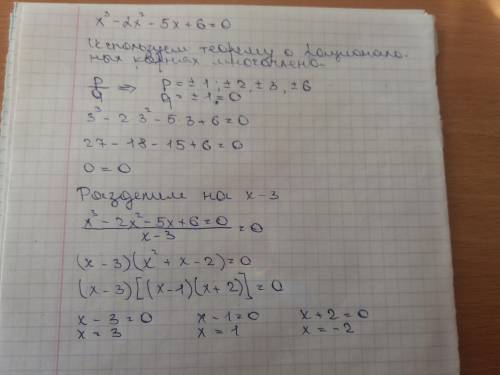 x³-2x²-5x+6=0
Используем теорему о рациональ-
ных корнях многочлена
p/q ⇒ p=±1;±2,±3,±6
q=±1;0
3³-2 3²-5 3+6=0
27-18-15+6=0
0=0
Разделим на x-3
x³-2x²-5x+6=0/x-3=0
(x-3)(x²+x-2)=0
(x-3)[(x-1)(x+2)]=0
x-3=0 x-1=0 x+2=0
x=3 x=1 x=-2